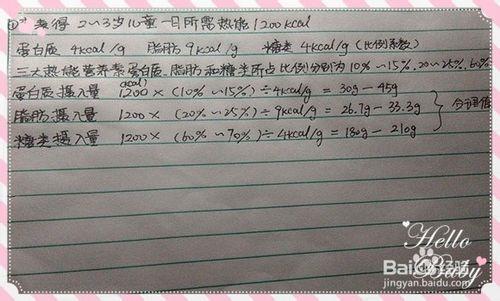 ① 查得 2~3岁儿童一日所需热能1200kcal
蛋白质 4kcal/g 脂肪 9kcal/g 糖类 4kcal/g (比例系数)
三大热能营养素蛋白质.脂肪和糖类所占比例分别为10%~15%.20~25%.60%
蛋白质摄入量 1200(kcal)×(10%~15%)÷4kcal/g = 30g-45g
脂肪摄入量 1200×(20%~25%)÷9kcal/g = 26.7g-33.3g
糖类摄入量 1200×(60%~70%)÷4kcal/g = 180g-210g
合理值
Hello
Baby
Baidu经验
jingyan.baidu.com